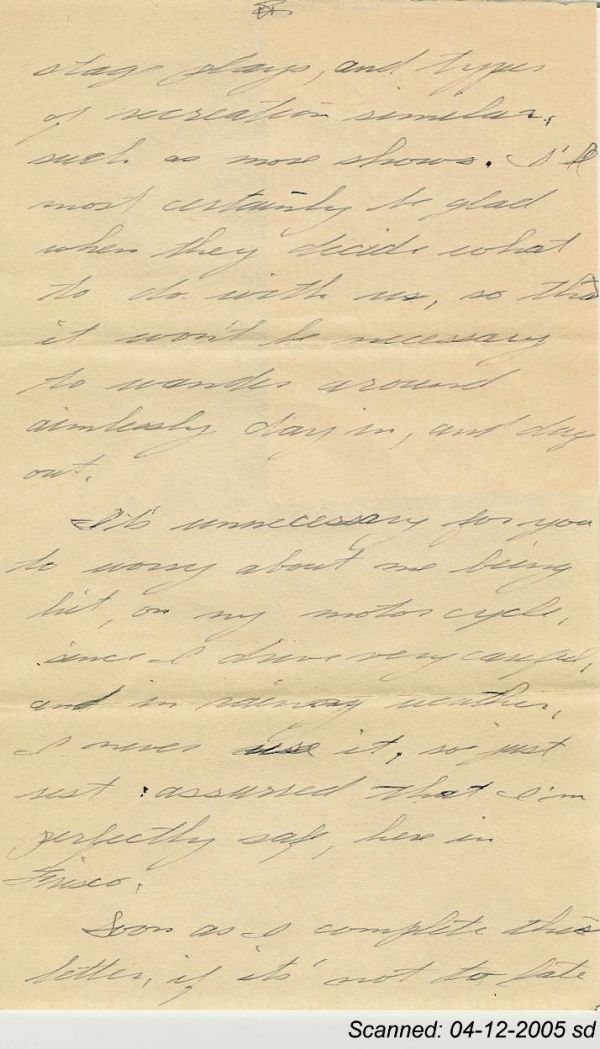 stage plays, and types
of recreation similar,
such as more shows. I'll
most certainly be glad
when they decide what
to do with us, so that
it won't be necessary
to wander around
aimlessly day in, and day
out.
It's unnecessary for you
to worry about me being
hit, on my motorcycle,
since I drive very careful,
and in rainy weather,
I never use it, so just
rest assured that I'm
perfectly safe, here in
Frisco.
Soon as I complete this
letter, if its' not to late
Scanned: 04-12-2005 sd